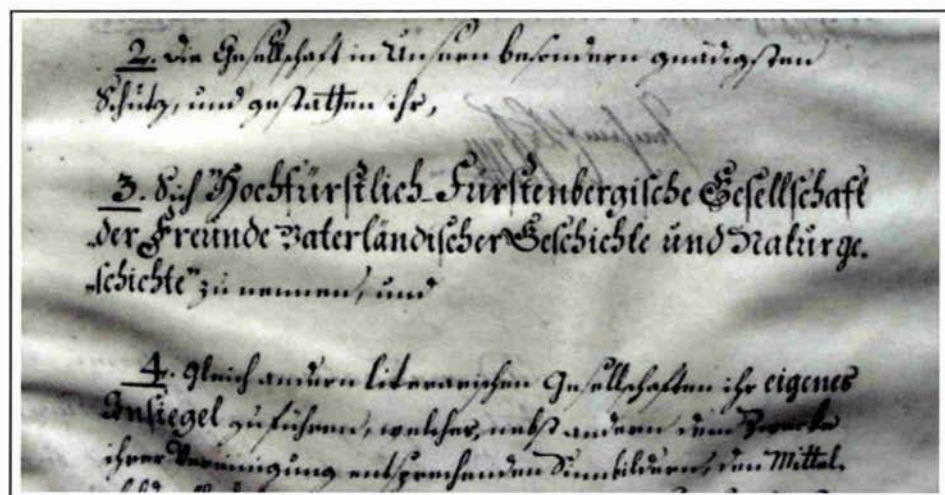 2. die Gesellschaft in Unsern besondern gnädigsten
Schutz, und gestatten ihr,
3. Sich "Hochfürstlich-Fürstenbergische Gesellschaft
„der Freunde Vaterländischer Geschichte und Naturge-
„schichte" zu nennen, und
4. gleich andern literarischen Gesellschaften ihr eigenes
Insiegel zu führen, welches, nebst andern dem Zwecke
ihrer Vereinigung entsprechenden Sinnbildern, den Mittel-